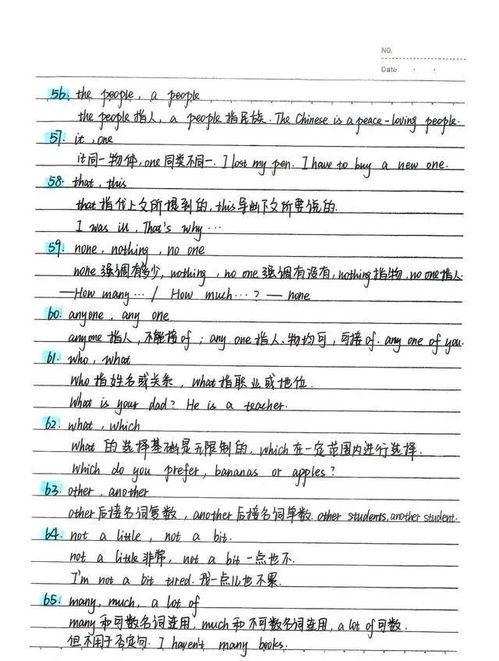 NO.
Date
56. the people, a people
the people指人, a people指民族. The Chinese is a peace-loving people.
57. it, one
it同一物体, one同类不同一. I lost my pen. I have to buy a new one.
58. that, this
that指代上文所提到的, this导出下文所要说的.
I was ill, That's why ···
59. none, nothing, no one
none强调有多少, nothing, no one强调有没有, nothing指物, no one指人
—How many··· / How much···? — none
60. anyone, any one
anyone指人, 不能接of; any one指人、物均可, 可接of. any one of you.
61. who, what
who指姓名或关系, what指职业或地位.
What is your dad? He is a teacher.
62. what, which
what的选择基础是无限制的, which在一定范围内进行选择.
Which do you prefer, bananas or apples?
63. other, another
other后接名词复数, another后接名词单数. other students, another student.
64. not a little, not a bit.
not a little非常, not a bit一点也不.
I'm not a bit tired. 我一点儿也不累.
65. many, much, a lot of
many和可数名词连用, much和不可数名词连用, a lot of可数.
但不用于否定句. I haven't many books.